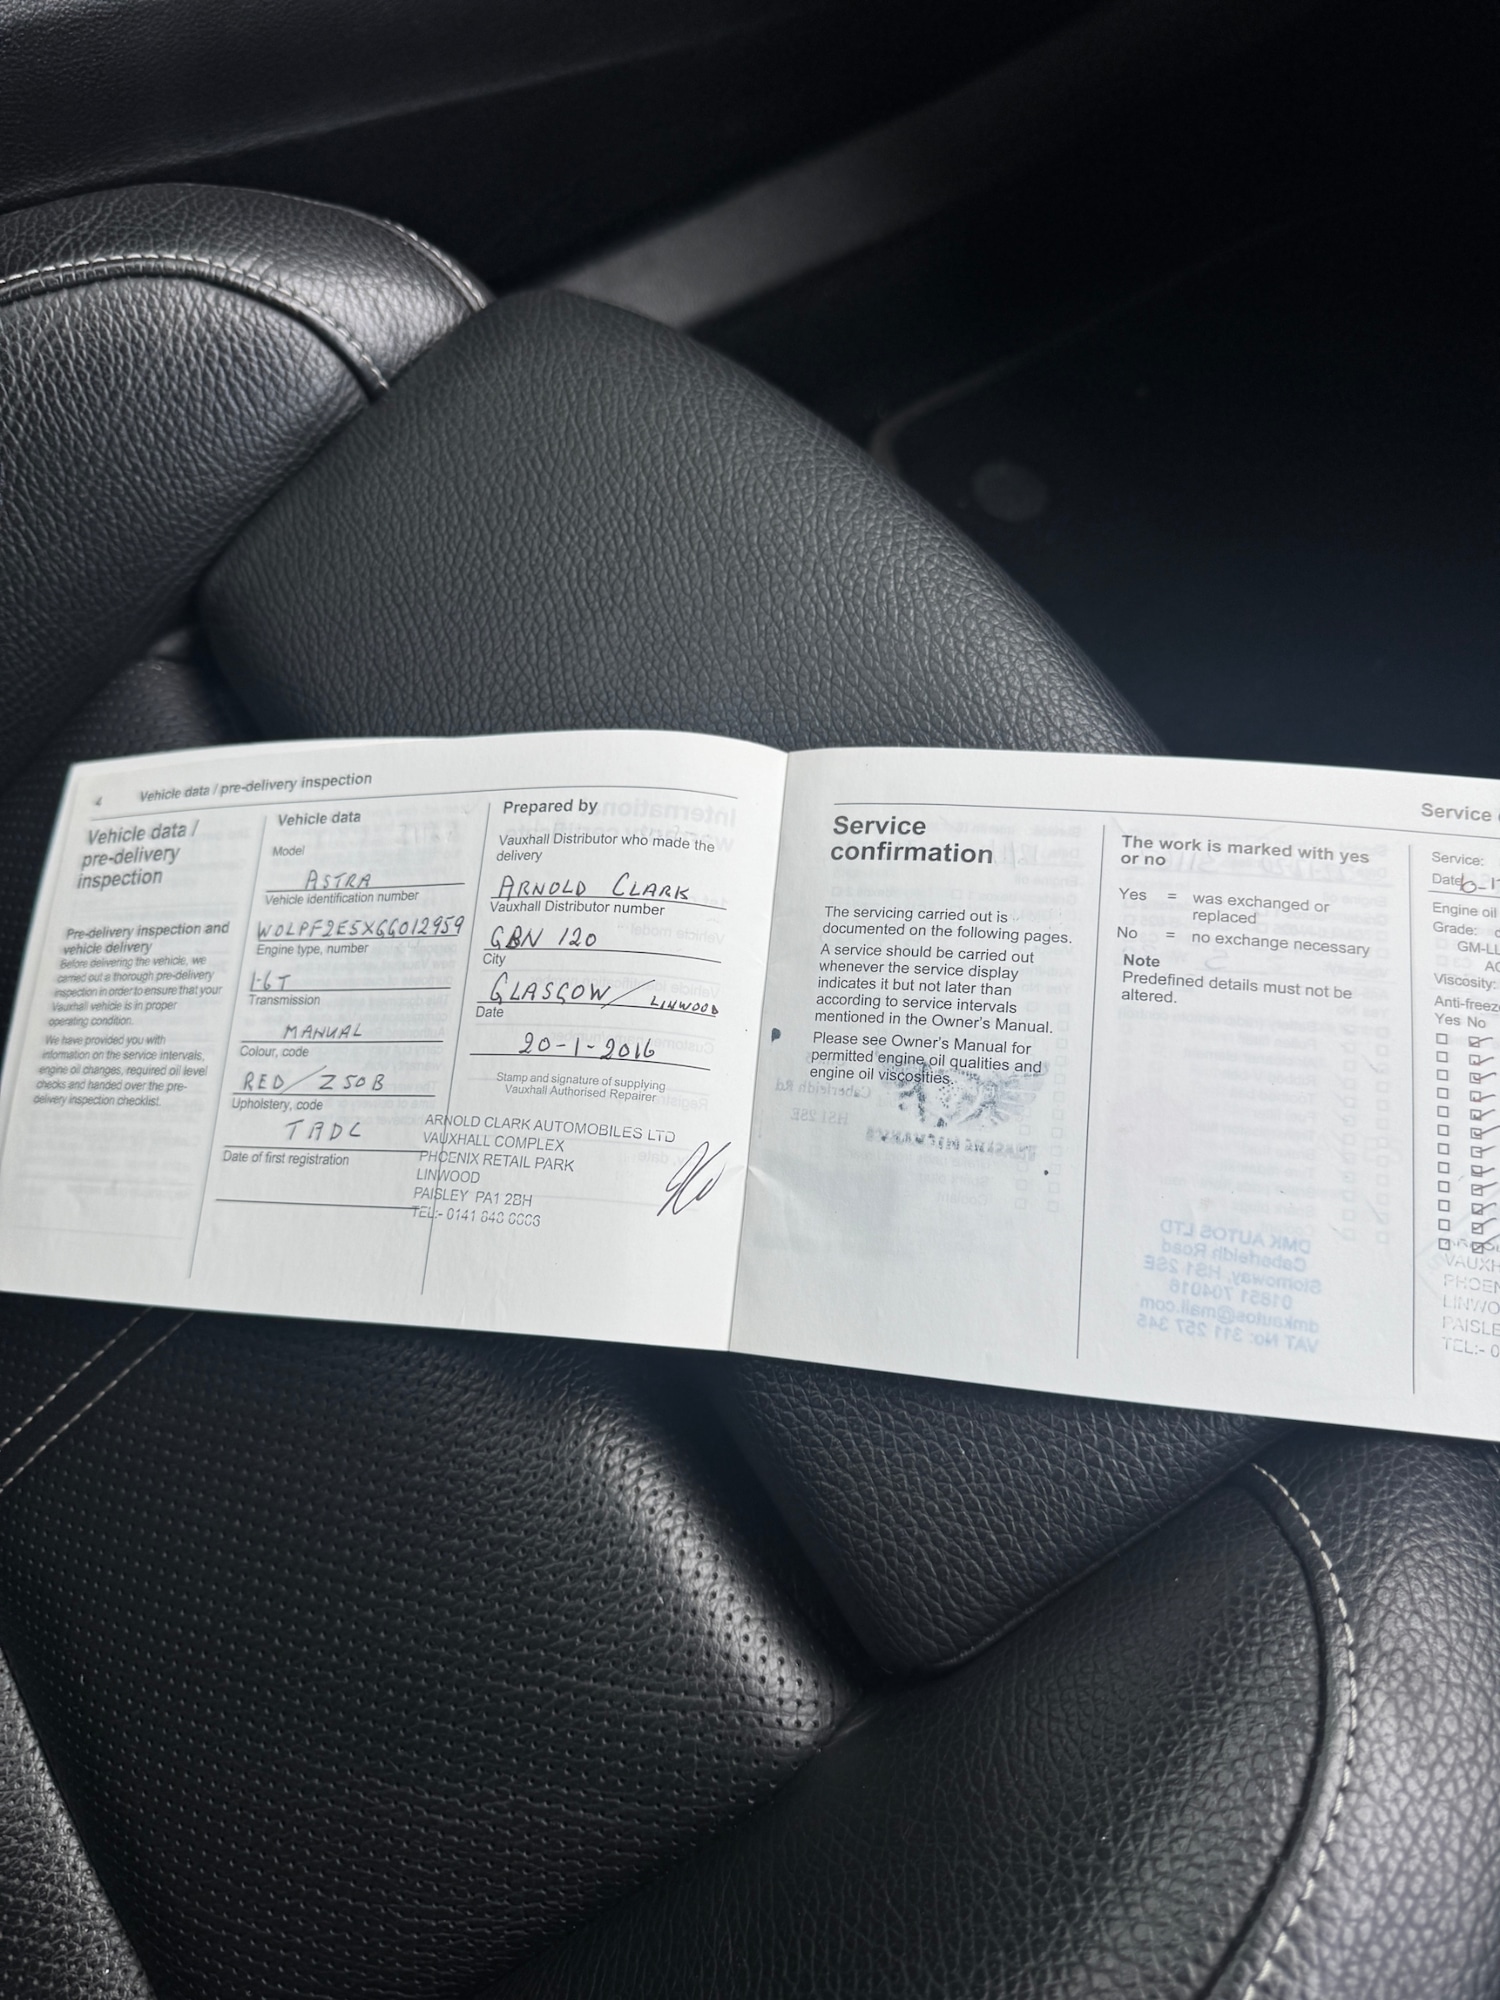 4 Vehicle data / pre-delivery inspection
Vehicle data /
pre-delivery
inspection
Pre-delivery inspection and
vehicle delivery
Before delivering the vehicle, we
carried out a thorough pre-delivery
inspection in order to ensure that your
Vauxhall vehicle is in proper
operating condition.
We have provided you with
information on the service intervals,
engine oil changes, required oil level
checks and handed over the pre-
delivery inspection checklist.
Vehicle data
Model
ASTRA
Vehicle identification number
WOLPF2E5XGG012959
Engine type, number
1.6T
Transmission
MANUAL
Colour, code
RED/Z50B
Upholstery, code
TADL
Date of first registration
Prepared by
Vauxhall Distributor who made the
delivery
ARNOLD CLARK
Vauxhall Distributor number
GBN 120
City
GLASGOW/LINWOOD
Date
20-1-2016
Stamp and signature of supplying
Vauxhall Authorised Repairer
ARNOLD CLARK AUTOMOBILES LTD
VAUXHALL COMPLEX
PHOENIX RETAIL PARK
LINWOOD
PAISLEY PA1 2BH
TEL:- 0141
Service
Service
confirmation
The servicing carried out is
documented on the following pages.
A service should be carried out
whenever the service display
indicates it but not later than
according to service intervals
mentioned in the Owner's Manual.
Please see Owner's Manual for
permitted engine oil qualities and
engine oil viscosities.
The work is marked with yes
or no
Yes = was exchanged or
replaced
No = no exchange necessary
Note
Predefined details must not be
altered.
Service:
Date
Engine oil
Grade:
GM-LL
AC
Viscosity:
Anti-freeze
Yes No
VAUXH
PHOEN
LINWO
PAISLE
TEL:- 0
DMK AUTOS LTD
Caberfeidh Road
Stornoway, HS1 2SE
01851 704016
dmkautos@mail.com
VAT No: 311 257 345